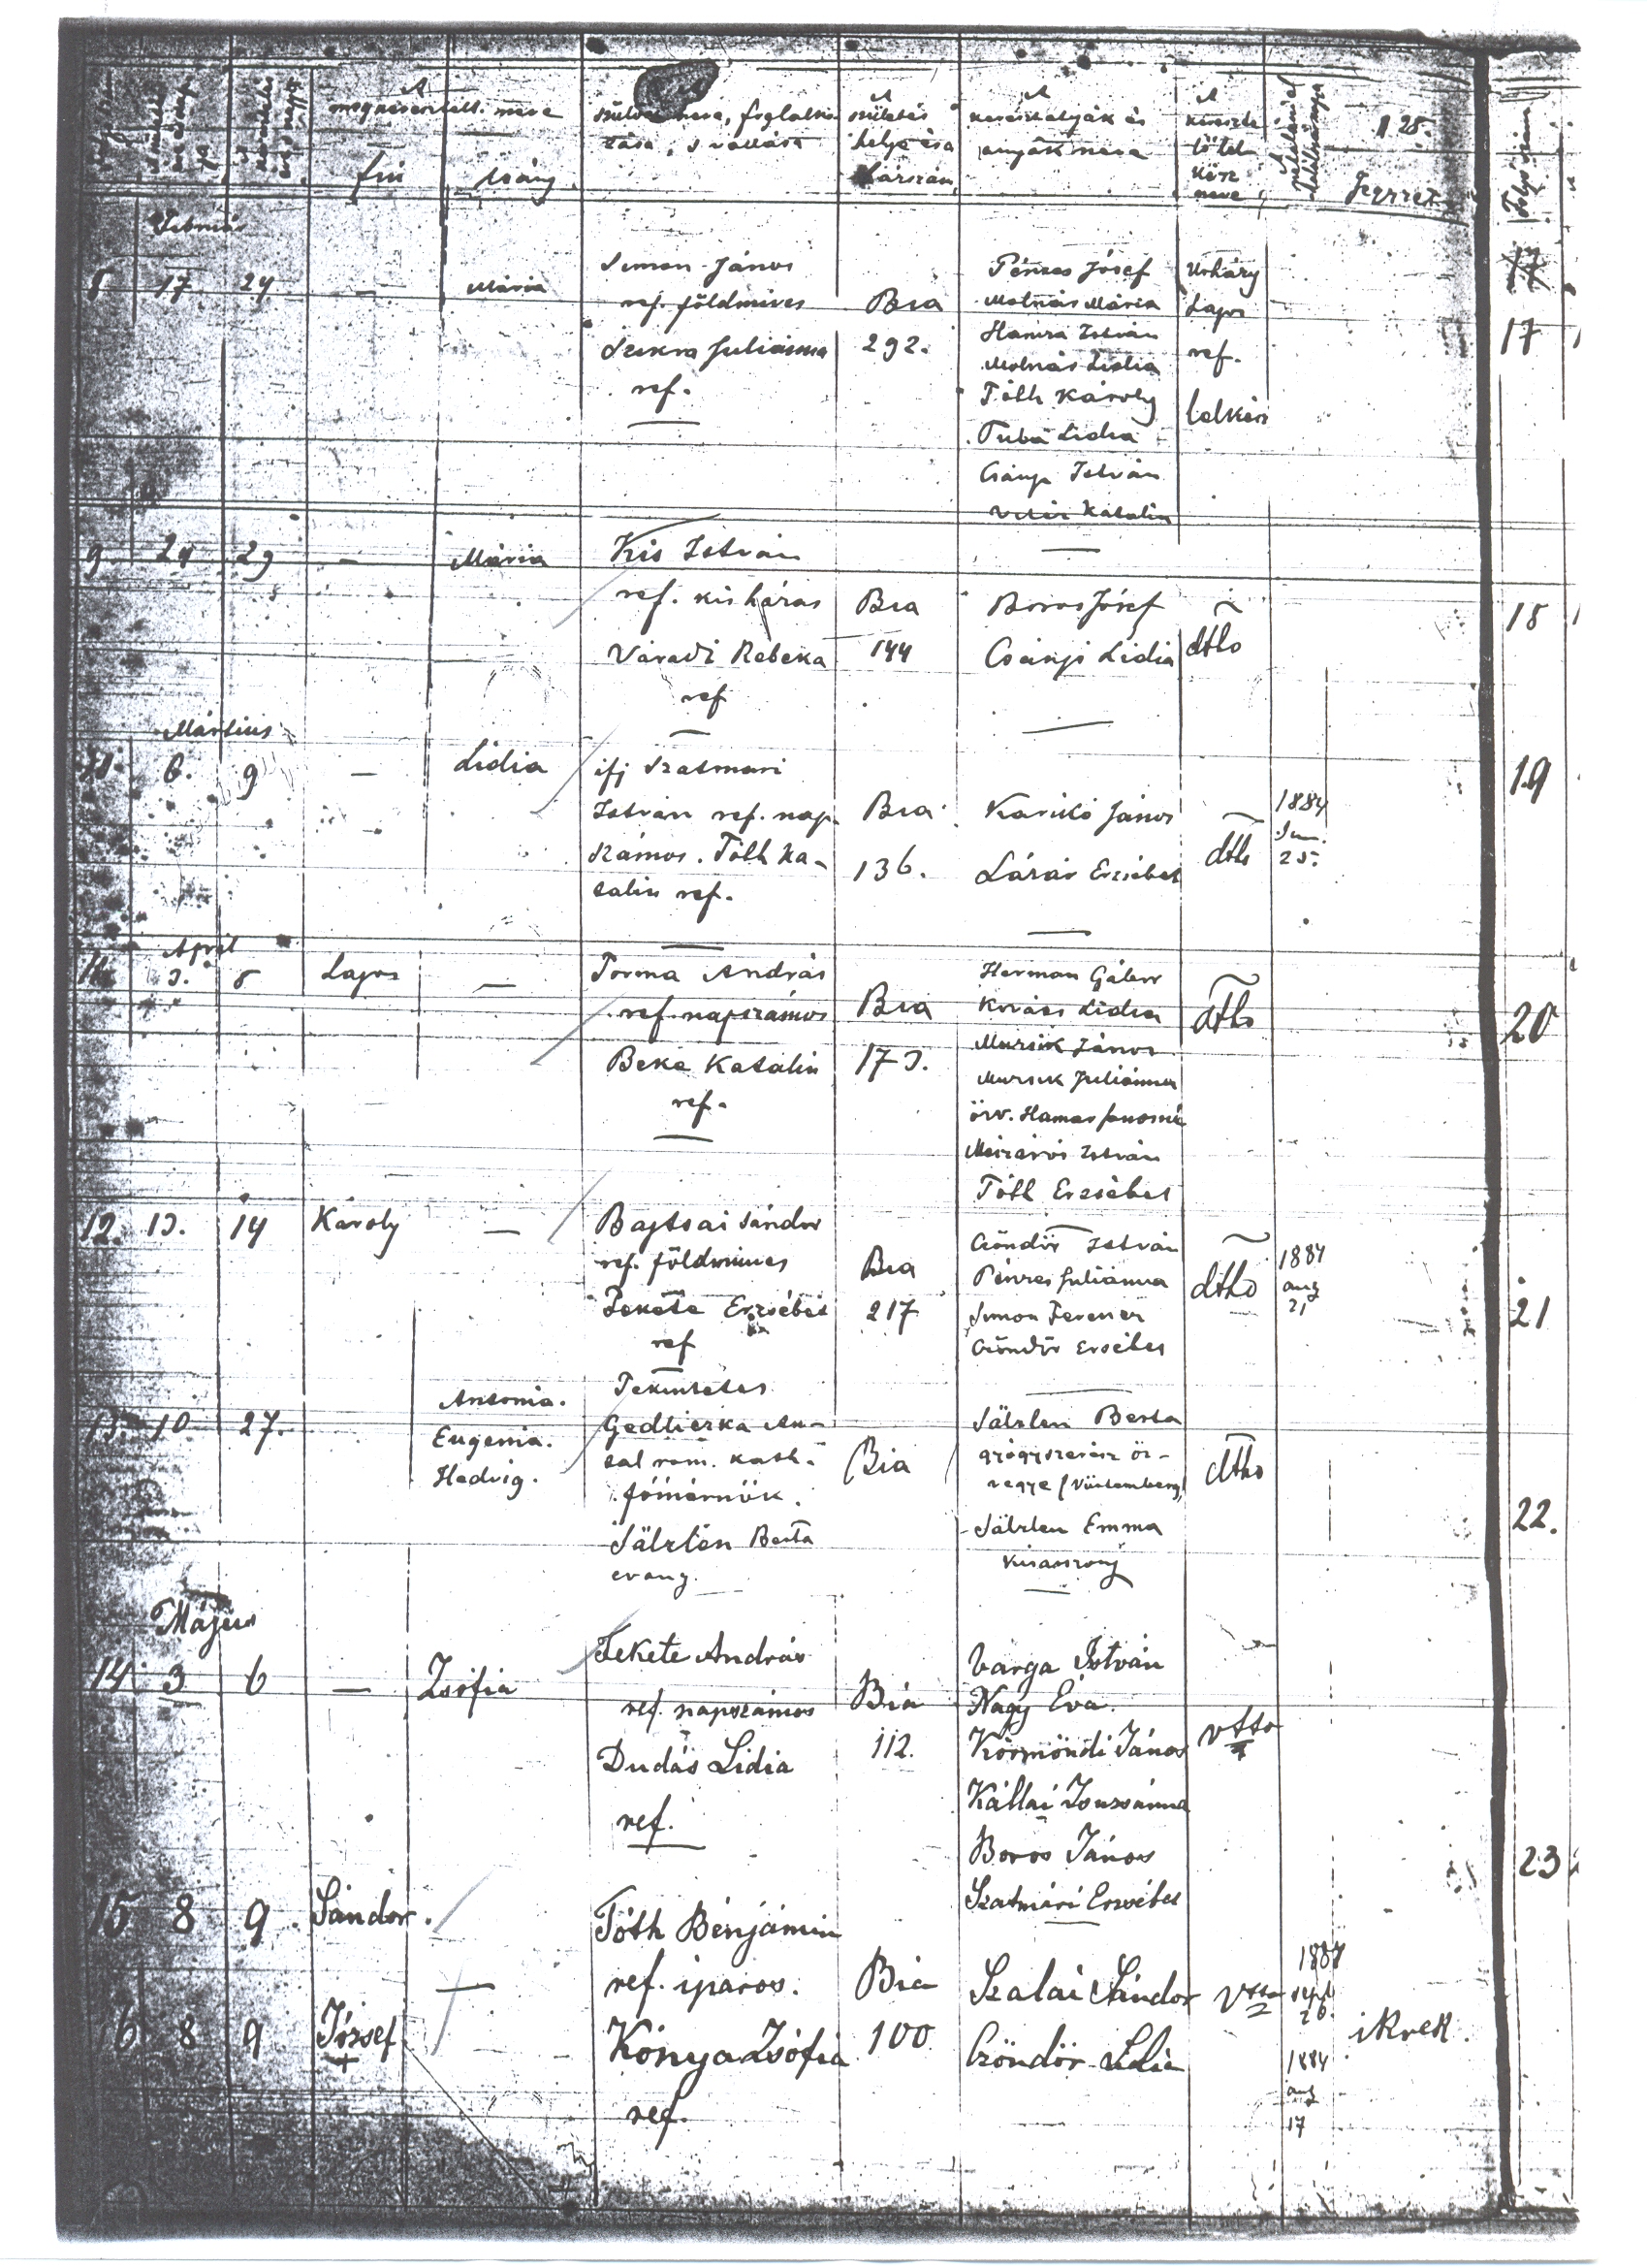 A
megkereszteltt neve
fiú
leány
szülők neve, foglalko-
zása, s vallása
A
születés
helye és a
házszám
A
keresztatyák és
anyák neve
A
keresztelő
lelkész
neve
A
halálának
Jegyzet
Folyószám
Február
8 17 24 — Mária
Simon János
ref. földmives
Szukra Juliánna
ref.
Bia
292.
Pénzes József
Molnár Mária
Hamza István
Molnár Lidia
Tóth Károly
Tuba Lidia
Csányi István
Katalin
Lajos
ref.
lelkész
17
9 24 29 — Mária
Kis István
ref. kisházas
Váradi Rebeka
ref
Bia
144
Boros József
Csányi Lidia
dtto
18
Mártius
10. 6. 9 — Lidia
ifj Szatmari
István ref. nap-
számos. Tóth Ka-
talin ref.
Bia
136.
Karikó János
Lázár Erzsébet
dtto
1884
Jun.
25.
19
April
11. 3. 8 Lajos —
Torma András
ref. napszámos
Beke Katalin
ref.
Bia
173.
Herman Gábor
Kovács Lidia
Mursik János
Mursik Juliánna
özv. Hamar Jánosné
István
Tóth Erzsébet
dtto
20
12. 13. 14 Károly —
Bajtsai Sándor
ref. földmives
Fekete Erzsébet
ref
Bia
217
Csöndör István
Pénzes Juliánna
Simon Ferencz
Csöndör Erzsébet
dtto
1884
aug
21
21
13. 10. 27.
Antonia.
Eugenia.
Hedvig.
Tekintetes
Gedliczka An-
tal rom. kath.
főmérnök.
Sälzlen Berta
evang.
Bia
Sälzlen Berta
gyógyszerész öz-
vegye (Würtemberg)
Sälzlen Emma
kisasszony
dtto
22.
Május
14 3 6 — Zsófia
Fekete András
ref. napszámos
Dudás Lidia
ref.
Bia
112.
Varga István
Nagy Éva.
Körmöndi János
Kállai Zsuzsánna
Boros János
Szatmári Erzsébet
vtto
23
15 8 9 Sándor.
16 8 9 József
—
Tóth Benjámin
ref. iparos.
Kónya Zsófia
ref.
Bia
100
Szalai Sándor
Csöndör Lidia
vtto
1884
sept
26.
ikrek.
1884
aug
17